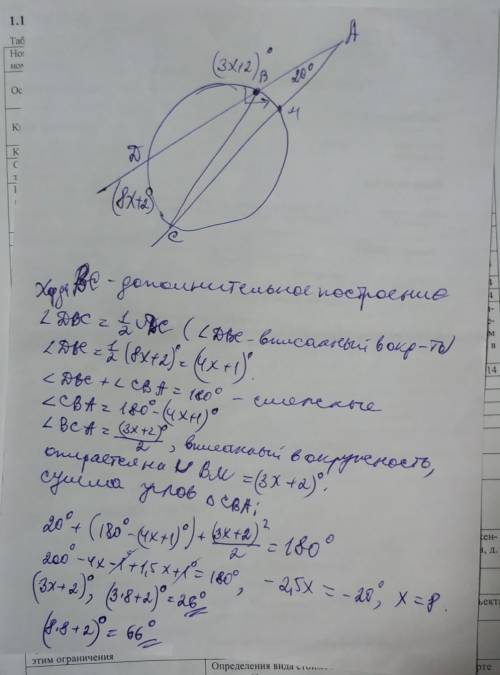 1.1
Таб
A
(3x+2)°
20°
B
M
D
(8x+2)°
C
Хорда BC - дополнительное построение
∠DBC = 1/2 ∪DC (∠DBC - вписанный в окр-ть)
∠DBC = 1/2 (8x+2)° = (4x+1)°
∠DBC + ∠CBA = 180° - смежные
∠CBA = 180° - (4x+1)°
∠BCA = (3x+2)°/2, вписанный в окружность,
опирается на ∪ BM = (3x+2)°.
сумма углов △CBA:
20° + (180° - (4x+1)°) + (3x+2)°/2 = 180°
200° - 4x - 1° + 1,5x + 1° = 180°, -2,5x = -20°, x = 8.
(3x+2)°, (3·8+2)° = 26°
(8·8+2)° = 66°
14
этим ограничения
Определения вида